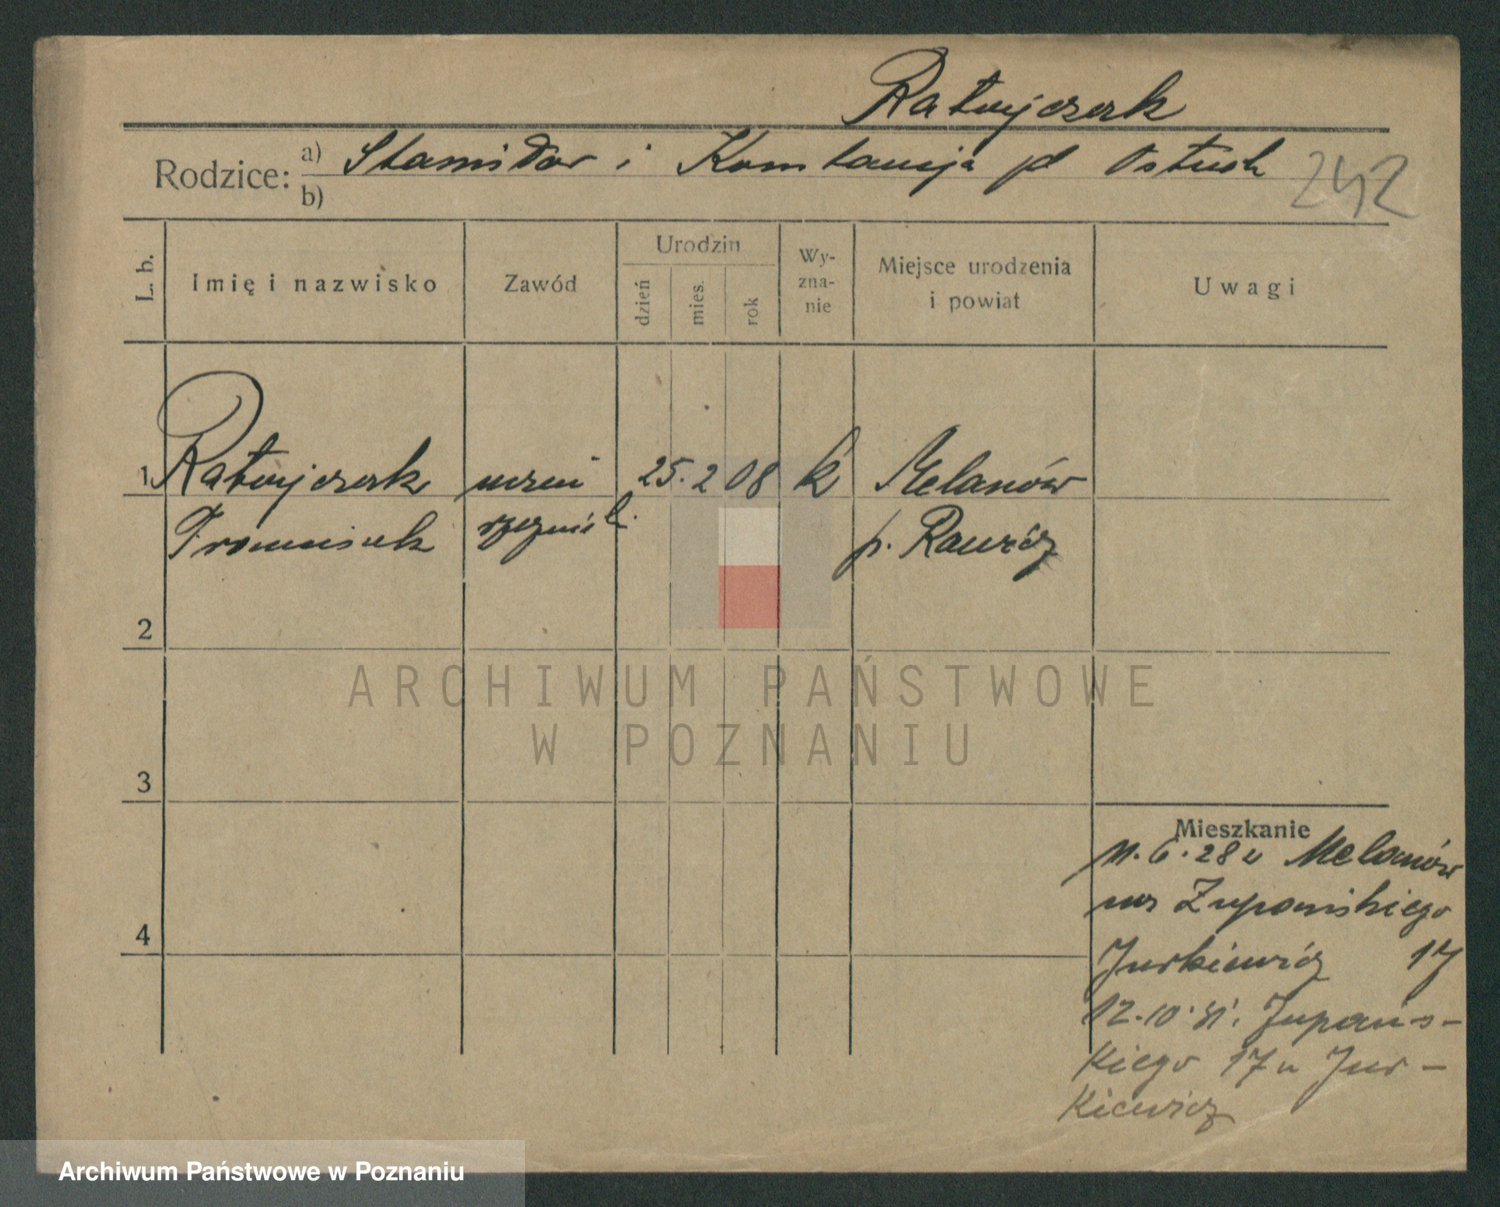 Ratajczak
Rodzice: a) Stanisław i Konstancja
b)
242
L. b. Imię i nazwisko Zawód Urodzin dzień mies. rok Wy-zna-nie Miejsce urodzenia i powiat Uwagi
1 Ratajczak uczeń 25. 2 08 k Melanów
Franciszek rzeźnic. p. Rawicz
2
3
4
Mieszkanie
11. 6. 28 Melanów
Żupańskiego
Jurkiewicz 17
12. 10. 31. Żupańs-
kiego 17 u Jur-
kiewicz
ARCHIWUM PAŃSTWOWE
W POZNANIU
Archiwum Państwowe w Poznaniu